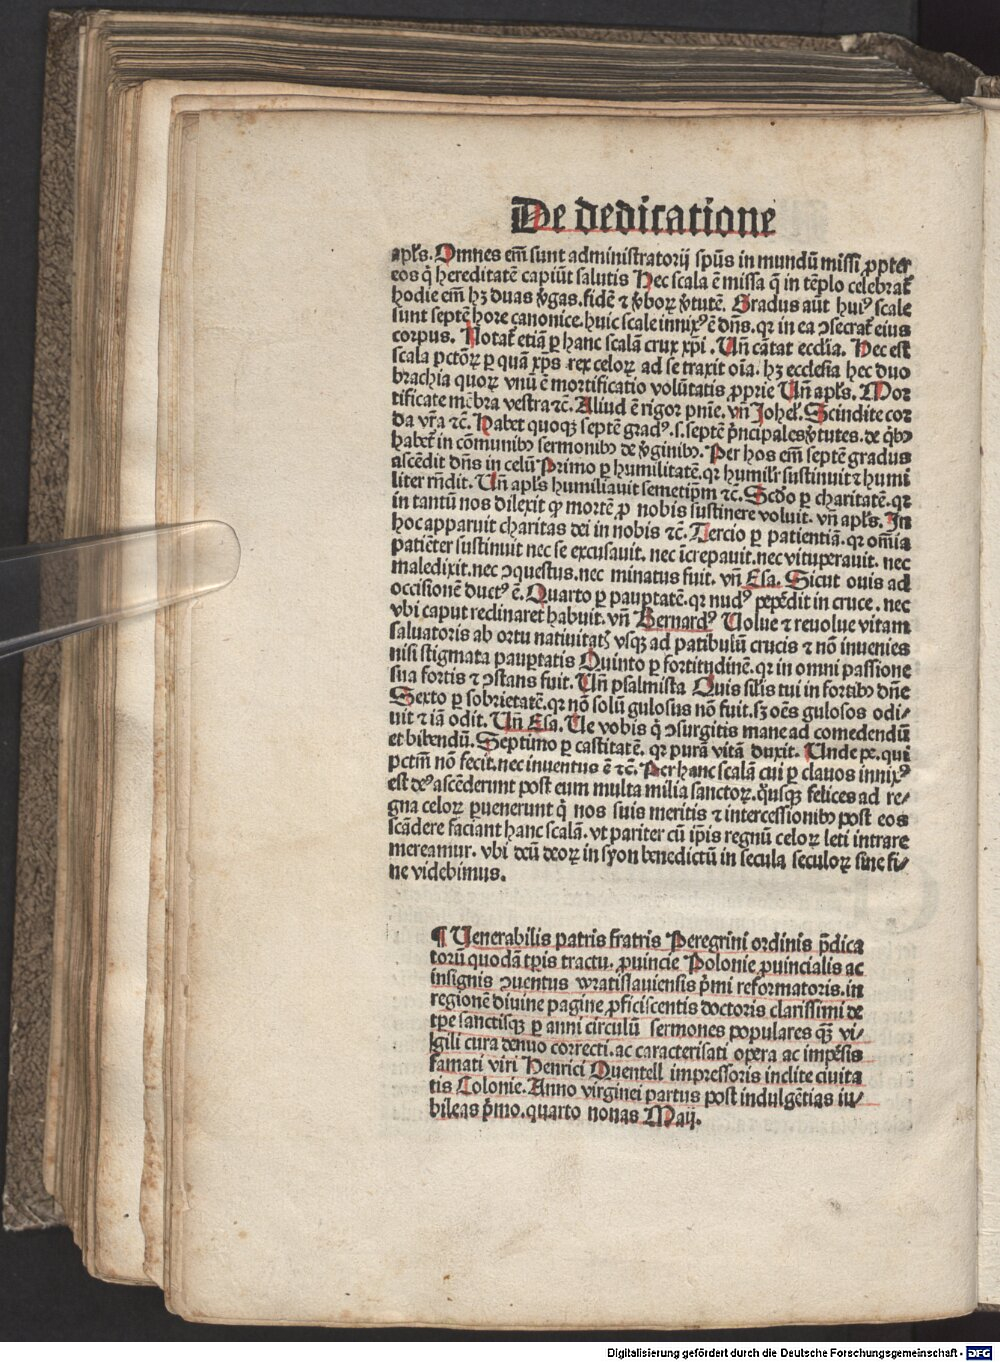 De dedicatione
apl's. Omnes em̄ sunt administratorij spūs in mundū missi ꝓpter
eos q̄ hereditatē capiūt salutis Hec scala ē missa q̄ in tēplo celebrat̄
hodie em̄ hꝫ duas v̄gas. fidē ⁊ v̄boꝝ v̄tutē. Gradus aūt huiꝰ scale
sunt septē hore canonice. huic scale innixꝰ ē dn̄s. qꝛ in ea ↄsecrat̄ eius
corpus. Notat̄ etiā ꝑ hanc scalā crux xp̄i. Vn̄ cātat ecclīa. Hec est
scala pctōꝝ ꝑ quā xp̄s rex celoꝝ ad se traxit oīa. hꝫ ecclesia hec duo
brachia quoꝝ vnū ē mortificatio volūtatis ꝓprie Vn̄ apl's. Mor
tificate mēbra vestra ⁊c̄. Aliud ē rigor pn̄ie. vn̄ Johel'. Scindite cor
da vr̄a ⁊c̄. Habet quoqꝫ septē gradꝰ. s. septē p̄ncipales v̄tutes. de q̄bꝰ
habet̄ in cōmunibꝰ sermonibꝰ de v̄ginibꝰ. Per hos em̄ septē gradus
ascēdit dn̄s in celū Primo ꝑ humilitatē. qꝛ humilr̄ sustinuit ⁊ humi
liter rn̄dit. Vn̄ apl's humiliauit semetip̄m ⁊c̄. Scd̄o ꝑ charitatē. qꝛ
in tantū nos dilexit ꝙ mortē ꝓ nobis sustinere voluit. vn̄ apl's. In
hoc apparuit charitas dei in nobis ⁊c̄. Tercio ꝑ patientiā. qꝛ om̄ia
patiēter sustinuit nec se excusauit. nec īcrepauit. nec vituperauit. nec
maledixit. nec ↄquestus. nec minatus fuit. vn̄ Esa. Sicut ouis ad
occisionē ductꝰ ē. Quarto ꝑ pauꝑtatē. qꝛ nudꝰ pepēdit in cruce. nec
vbi caput reclinaret habuit. vn̄ Bernardꝰ Volue ⁊ reuolue vitam
saluatoris ab ortu natiuitatꝭ vsqꝫ ad patibulū crucis ⁊ nō inuenies
nisi stigmata pauꝑtatis Quinto ꝑ fortitudinē. qꝛ in omni passione
sua fortis ⁊ ↄstans fuit. Vn̄ psalmista Quis sil'is tui in fortibꝰ dn̄e
Sexto ꝑ sobrietatē. qꝛ nō solū gulosus nō fuit. sꝫ oēs gulosos odi/
uit ⁊ iā odit. Vn̄ Esa. Ue vobis q̄ ↄsurgitis mane ad comedendū
et bibendū. Septimo ꝑ castitatē. qꝛ purā vitā duxit. Unde pe. qui
pctm̄ nō fecit. nec inuentus ē ⁊c̄. Per hanc scalā cui ꝑ clauos innixꝰ
est deꝰ ascēderunt post eum multa milia sanctoꝝ. q̄usqꝫ felices ad re/
gna celoꝝ ꝑuenerunt q̄ nos suis meritis ⁊ intercessionibꝰ post eos
scādere faciant hanc scalā. vt pariter cū ip̄is regnū celoꝝ leti intrare
mereamur. vbi deū deoꝝ in syon benedictū in secula seculoꝝ sine fi/
ne videbimus.
¶ Uenerabilis patris fratris Peregrini ordinis p̄dica
torū quodā tp̄is tractu. ꝓuincie Polonie ꝓuincialis ac
insignis ↄuentus wratislauiensis p̄mi reformatoris. in
regionē diuine pagine ꝓficiscentis doctoris clarissimi de
tp̄e sanctisqꝫ ꝑ anni circulū sermones populares qꝫ̄ vi/
gili cura denuo correcti. ac caracterisati opera ac impēsis
famati viri Henrici Quentell impressoris inclite ciuita
tis Colonie. Anno virginei partus post indulgētias iu/
bileas p̄mo. quarto nonas Maij.
Digitalisierung gefördert durch die Deutsche Forschungsgemeinschaft - DFG